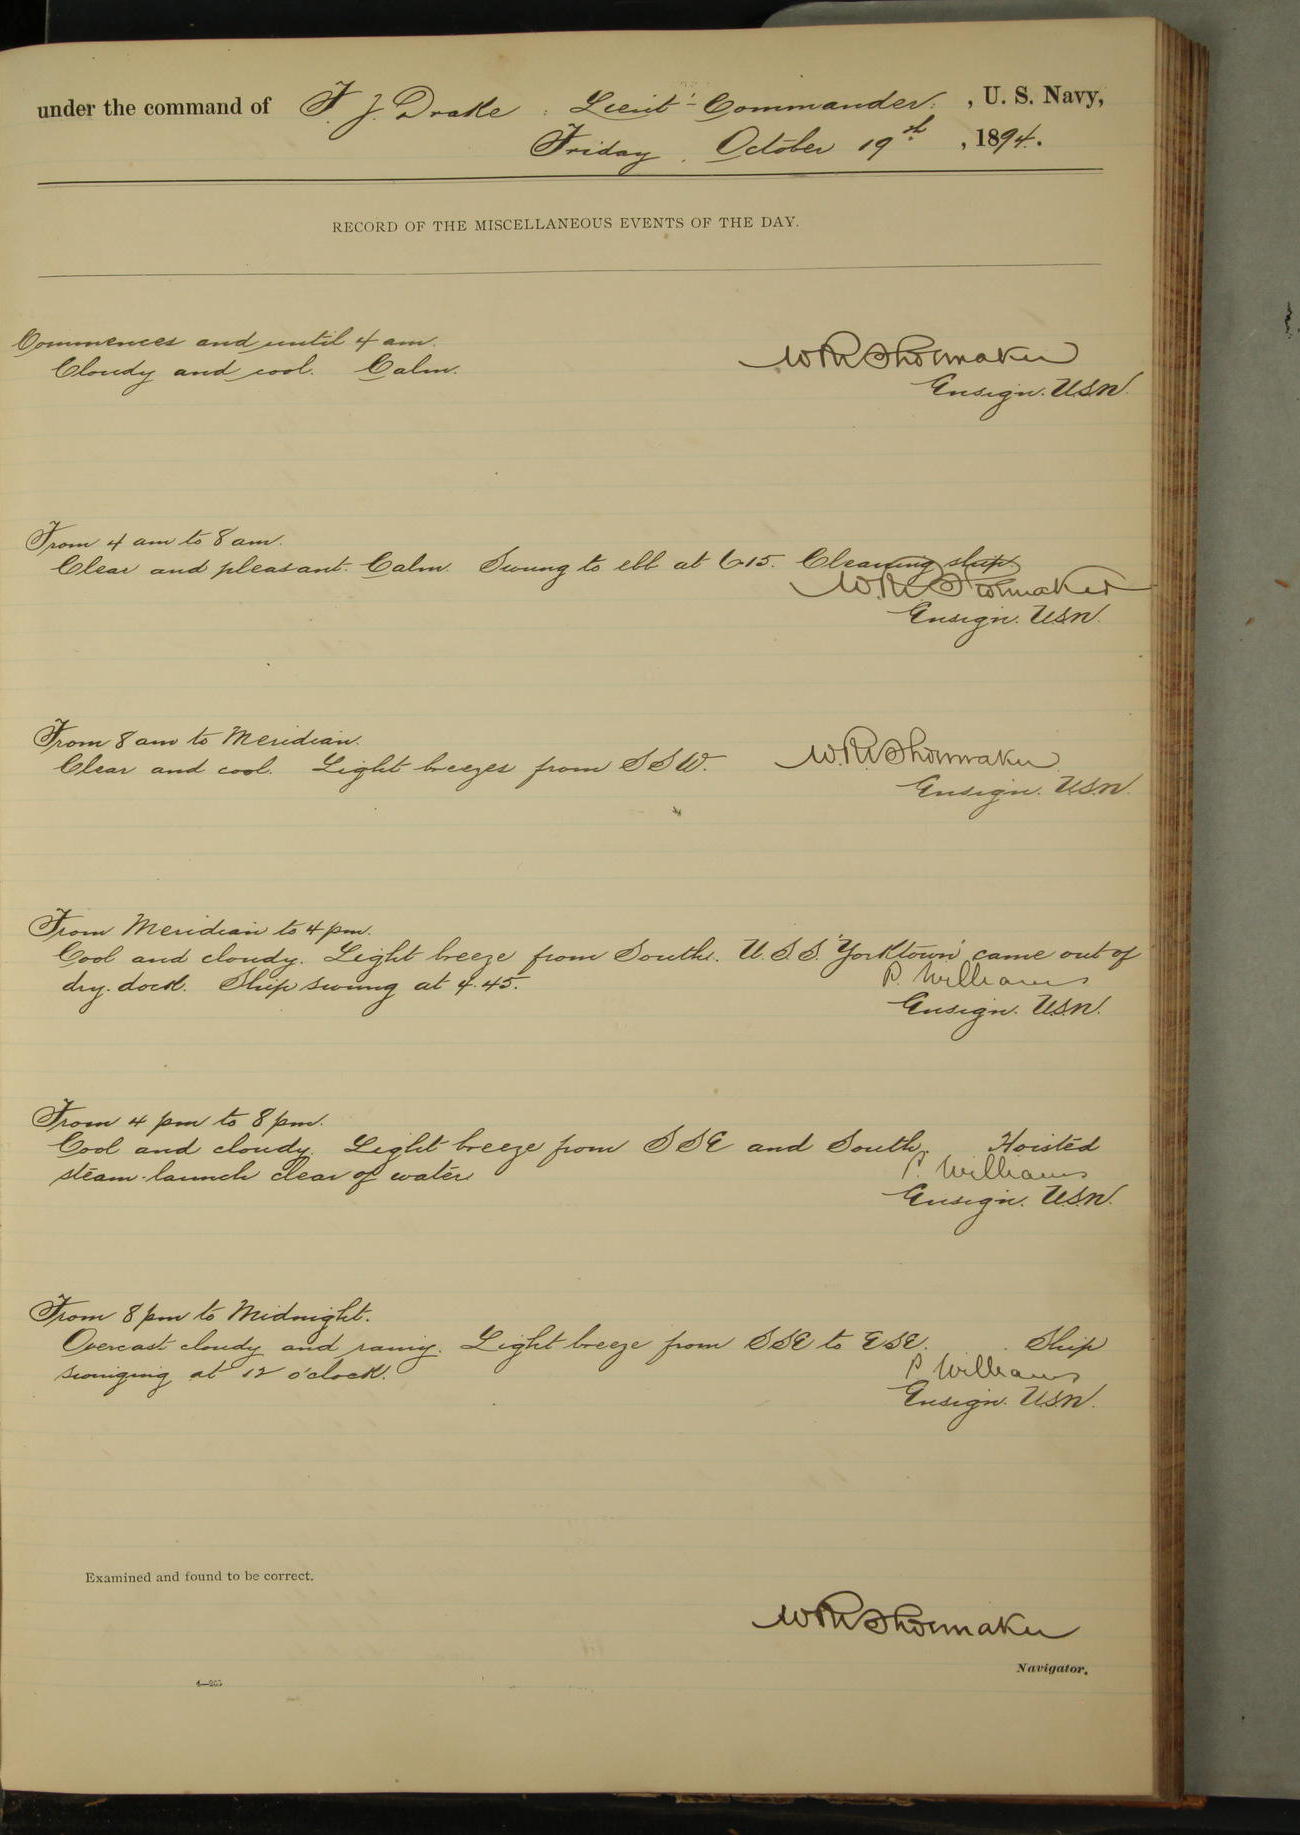 under the command of F. J. Drake. Lieut'-Commander. , U. S. Navy,
Friday. October 19th , 1894.
RECORD OF THE MISCELLANEOUS EVENTS OF THE DAY.
Commences and until 4 am.
Cloudy and cool. Calm.
W R Shoemaker
Ensign. U.S.N.
From 4 am to 8 am.
Clear and pleasant. Calm. Swung to ebb at 6.15. Cleaning ship.
W. R. Shoemaker
Ensign. U.S.N.
From 8 am to Meridian.
Clear and cool. Light breezes from SSW.
W. R. Shoemaker
Ensign. U.S.N.
From Meridian to 4 pm.
Cool and cloudy. Light breeze from South. U.S.S. 'Yorktown' came out of
dry. dock. Ship swung at 4.45.
P. Williams
Ensign. U.S.N.
From 4 pm to 8 pm.
Cool and cloudy. Light breeze from SSE and South. Hoisted
steam-launch clear of water
P. Williams
Ensign. U.S.N.
From 8 pm to Midnight.
Overcast cloudy and rainy. Light breeze from SSE to ESE. Ship
swinging at 12 o'clock.
P Williams
Ensign. U.S.N.
Examined and found to be correct.
W R Shoemaker
Navigator.